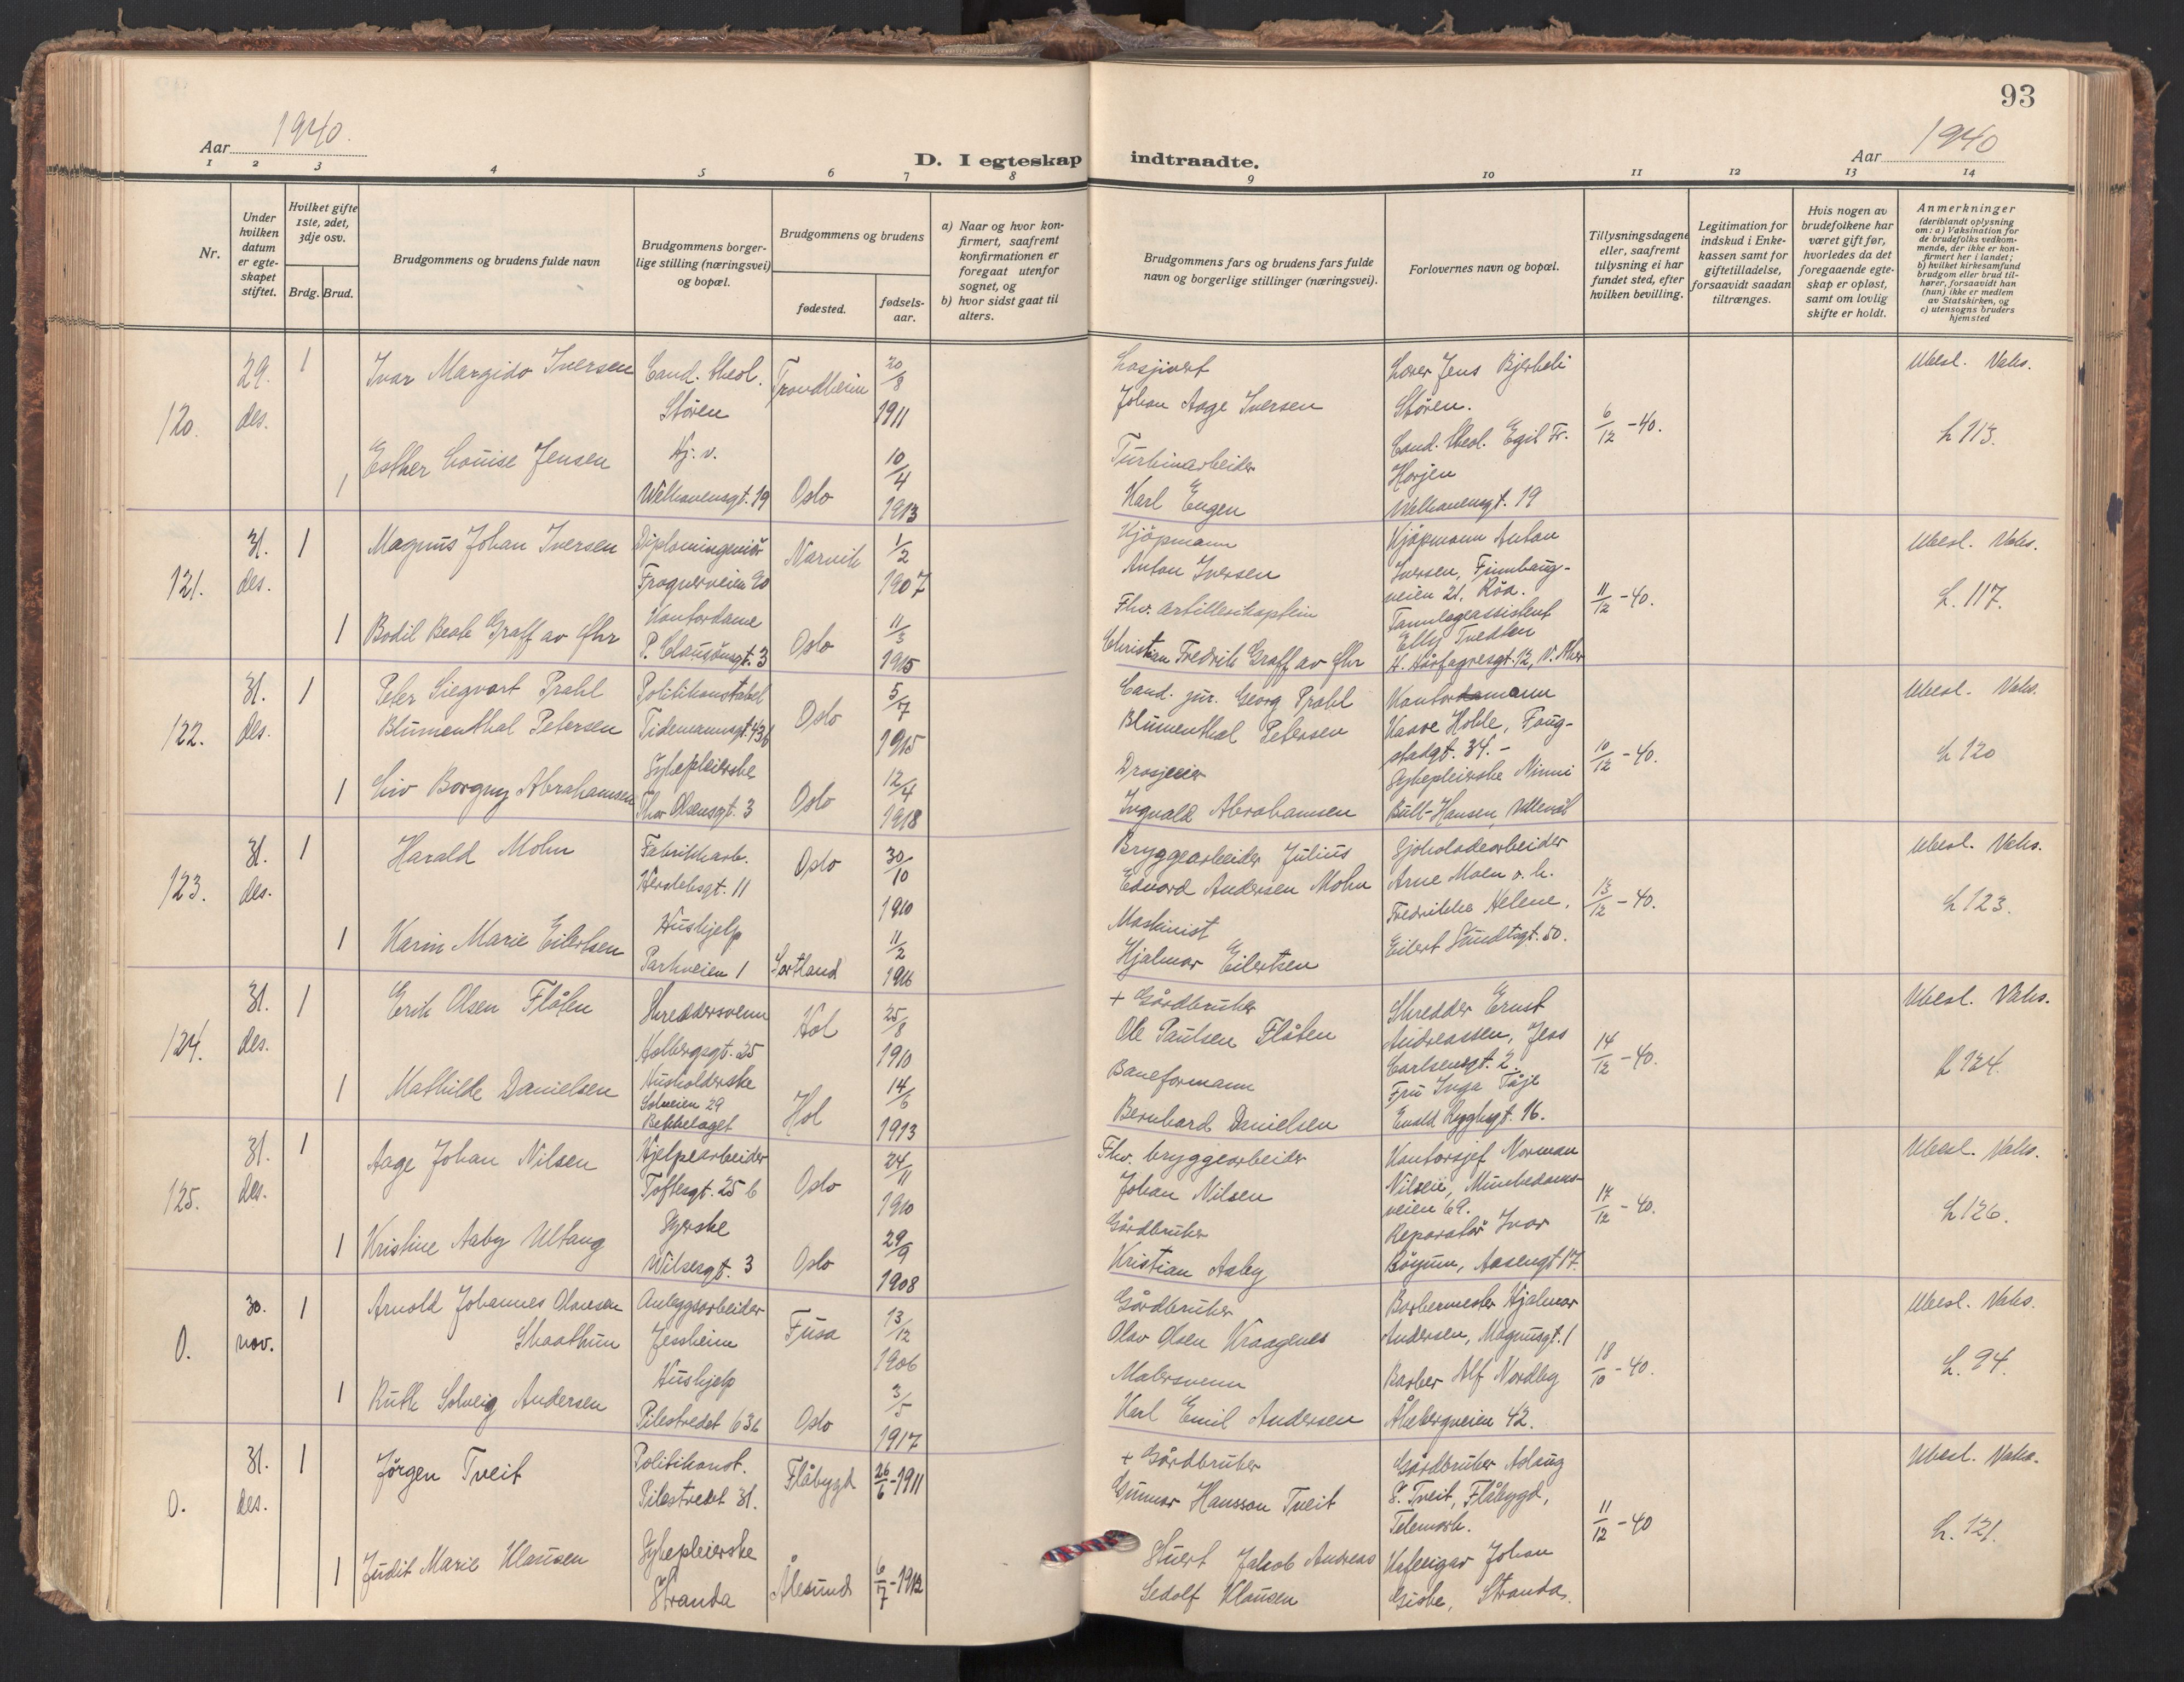 93
Aar 1940.
D. I egteskap indtraadte.
Aar 1940
1 2 3 4 5 6 7 8 9 10 11 12 13 14
Nr.
Under hvilken datum er egteskapet stiftet.
Hvilket gifte 1ste, 2det, 3dje osv.
Brdg. Brud.
Brudgommens og brudens fulde navn
Brudgommens borgerlige stilling (næringsvei) og bopæl.
Brudgommens og brudens
fødested.
fødselsaar.
a) Naar og hvor konfirmert, saafremt konfirmationen er foregaat utenfor sognet, og
b) hvor sidst gaat til alters.
Brudgommens fars og brudens fars fulde navn og borgerlige stillinger (næringsvei).
Forlovernes navn og bopæl.
Tillysningsdagene eller, saafremt tillysning ei har fundet sted, efter hvilken bevilling.
Legitimation for indskud i Enkekassen samt for giftetilladelse, forsaavidt saadan tiltrænges.
Hvis nogen av brudefolkene har været gift før, hvorledes da det foregaaende egteskap er opløst, samt om lovlig skifte er holdt.
Anmerkninger
(deriblandt oplysning om: a) Vaksination for de brudefolks vedkommende, der ikke er konfirmert her i landet; b) hvilket kirkesamfund brudgom eller brud tilhører, forsaavidt han (hun) ikke er medlem av Statskirken, og c) utensogns bruders hjemsted
120.
29. des.
1
Ivar Margido Iversen
Cand. theol.
Støren
Trondheim
20/8 1911
Johan Aage Iversen
Lærer Jens Bjerkeli
Støren.
6/12 -40.
Ubesl. Vaks.
1
Esther Louise Jensen
Hj. v.
Welhavensgt. 19
Oslo
10/4 1913
Turbinarbeider
Karl Eugen
Cand. theol. Egil Fr.
Welhavensgt. 19
L 113.
121.
31. des.
1
Magnus Johan Iversen
Diplomingeniør
Frognerveien 20
Narvik
1/2 1907
Kjøpmann
Anton Iversen
Kjøpmann Anton
Iversen, Finnhaug-
veien 21. Røa.
11/12 -40.
Ubesl. Vaks.
1
Bodil Beate Graff av Ohr
Kontordame
P. Clausønsgt. 3
Oslo
11/3 1915
Fhv. artillerikaptein
Christian Fredrik Graff av Ohr
Tannlegeassistent
Elly Tvedten
H. Hårfagresgt. 12, V. Aker
L. 117.
122.
31. des.
1
Peter Siegvart Prahl
Blumenthal Petersen
Politikonstabel
Tidemannsgt. 43b
Oslo
5/7 1915
Cand. jur. Georg Prahl
Blumenthal Petersen
Kontormann
Kaare Hoble, Faug-
stadgt. 34. -
10/12 -40.
Ubesl. Vaks.
1
Liv Borgny Abrahamsen
Sykepleierske
Thor Olsensgt. 3
Oslo
12/4 1918
Drosjeeier
Ingvald Abrahamsen
Sykepleierske Ninni
Bull-Hansen, Ullevål
L 120
123.
31. des.
1
Harald Mohn
Fabrikkarb.
Herslebsgt. 11
Oslo
30/10 1910
Bryggearbeider Julius
Edvard Andersen Mohn
Sjokoladearbeider
Arne Moen o. h.
Fredrikke Helene,
13/12 -40.
Ubesl. Vaks.
1
Karin Marie Eilertsen
Hushjelp
Parkveien 1
Sortland
11/2 1916
Maskinist
Hjalmar Eilertsen
Eilert Sundtsgt. 50.
L 123.
124.
31. des.
1
Erik Olsen Flåten
Skreddersvenn
Holbergsgt. 25
Hol
25/8 1910
+ Gårdbruker
Ole Paulsen Flåten
Skredder Ernst
Andreassen, Jess
Carlsensgt. 2.
14/12 -40.
Ubesl. Vaks.
1
Mathilde Danielsen
Husholderske
Solveien 29
Bekkelaget
Hol
14/6 1913
Baneformann
Bernhard Danielsen
Fru Inga Tøje
Enald Ryghsgt. 16.
L 124.
125.
31. des.
1
Aage Johan Nilsen
Hjelpearbeider
Toftesgt. 25 b
Oslo
24/11 1910
Fhv. bryggearbeider
Johan Nilsen
Kontorsjef Norman
Nilseie, Munkedams-
veien 69.
17/12 -40.
Ubesl. Vaks.
1
Kristine Aaby Ultang
Syerske
Wilsesgt. 3
Oslo
29/9 1908
Gårdbruker
Kristian Aaby
Reparatør Ivar
Røyum, Aasengt 17.
L 126.
0.
30. nov.
1
Arnold Johannes Olavsen
Skaathun
Anleggsarbeider
Jessheim
Fusa
13/12 1906
Gårdbruker
Olav Olsen Kraagenes
Barbermester Hjalmar
Andersen, Magnusgt. 1
18/10 -40.
Ubesl. Vaks.
1
Ruth Solveig Andersen
Hushjelp
Pilestredet 63b
Oslo
3/5 1917
Malersvenn
Karl Emil Andersen
Barber Alf Nordby
Åkebergveien 42.
L. 94.
0.
31. des.
1
Jørgen Tveit
Politikonst.
Pilestredet 31.
Flåbygd
26/6 -1911
+ Gårdbruker
Gunnar Hansson Tveit
Gårdbruker Aslaug
S. Tveit, Flåbygd,
Telemark.
11/12 -40
Ubesl. Vaks.
1
Judit Marie Klausen
Sykepleierske
Stranda
Ålesund
6/7 -1912
Stuert Jakob Andreas
Sedolf Klausen
Kafeeigar Johan
Giske, Stranda.
L. 121.